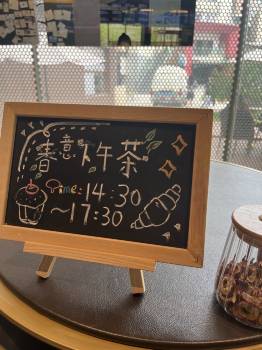 春意下午茶
Time: 14:30
~17:30